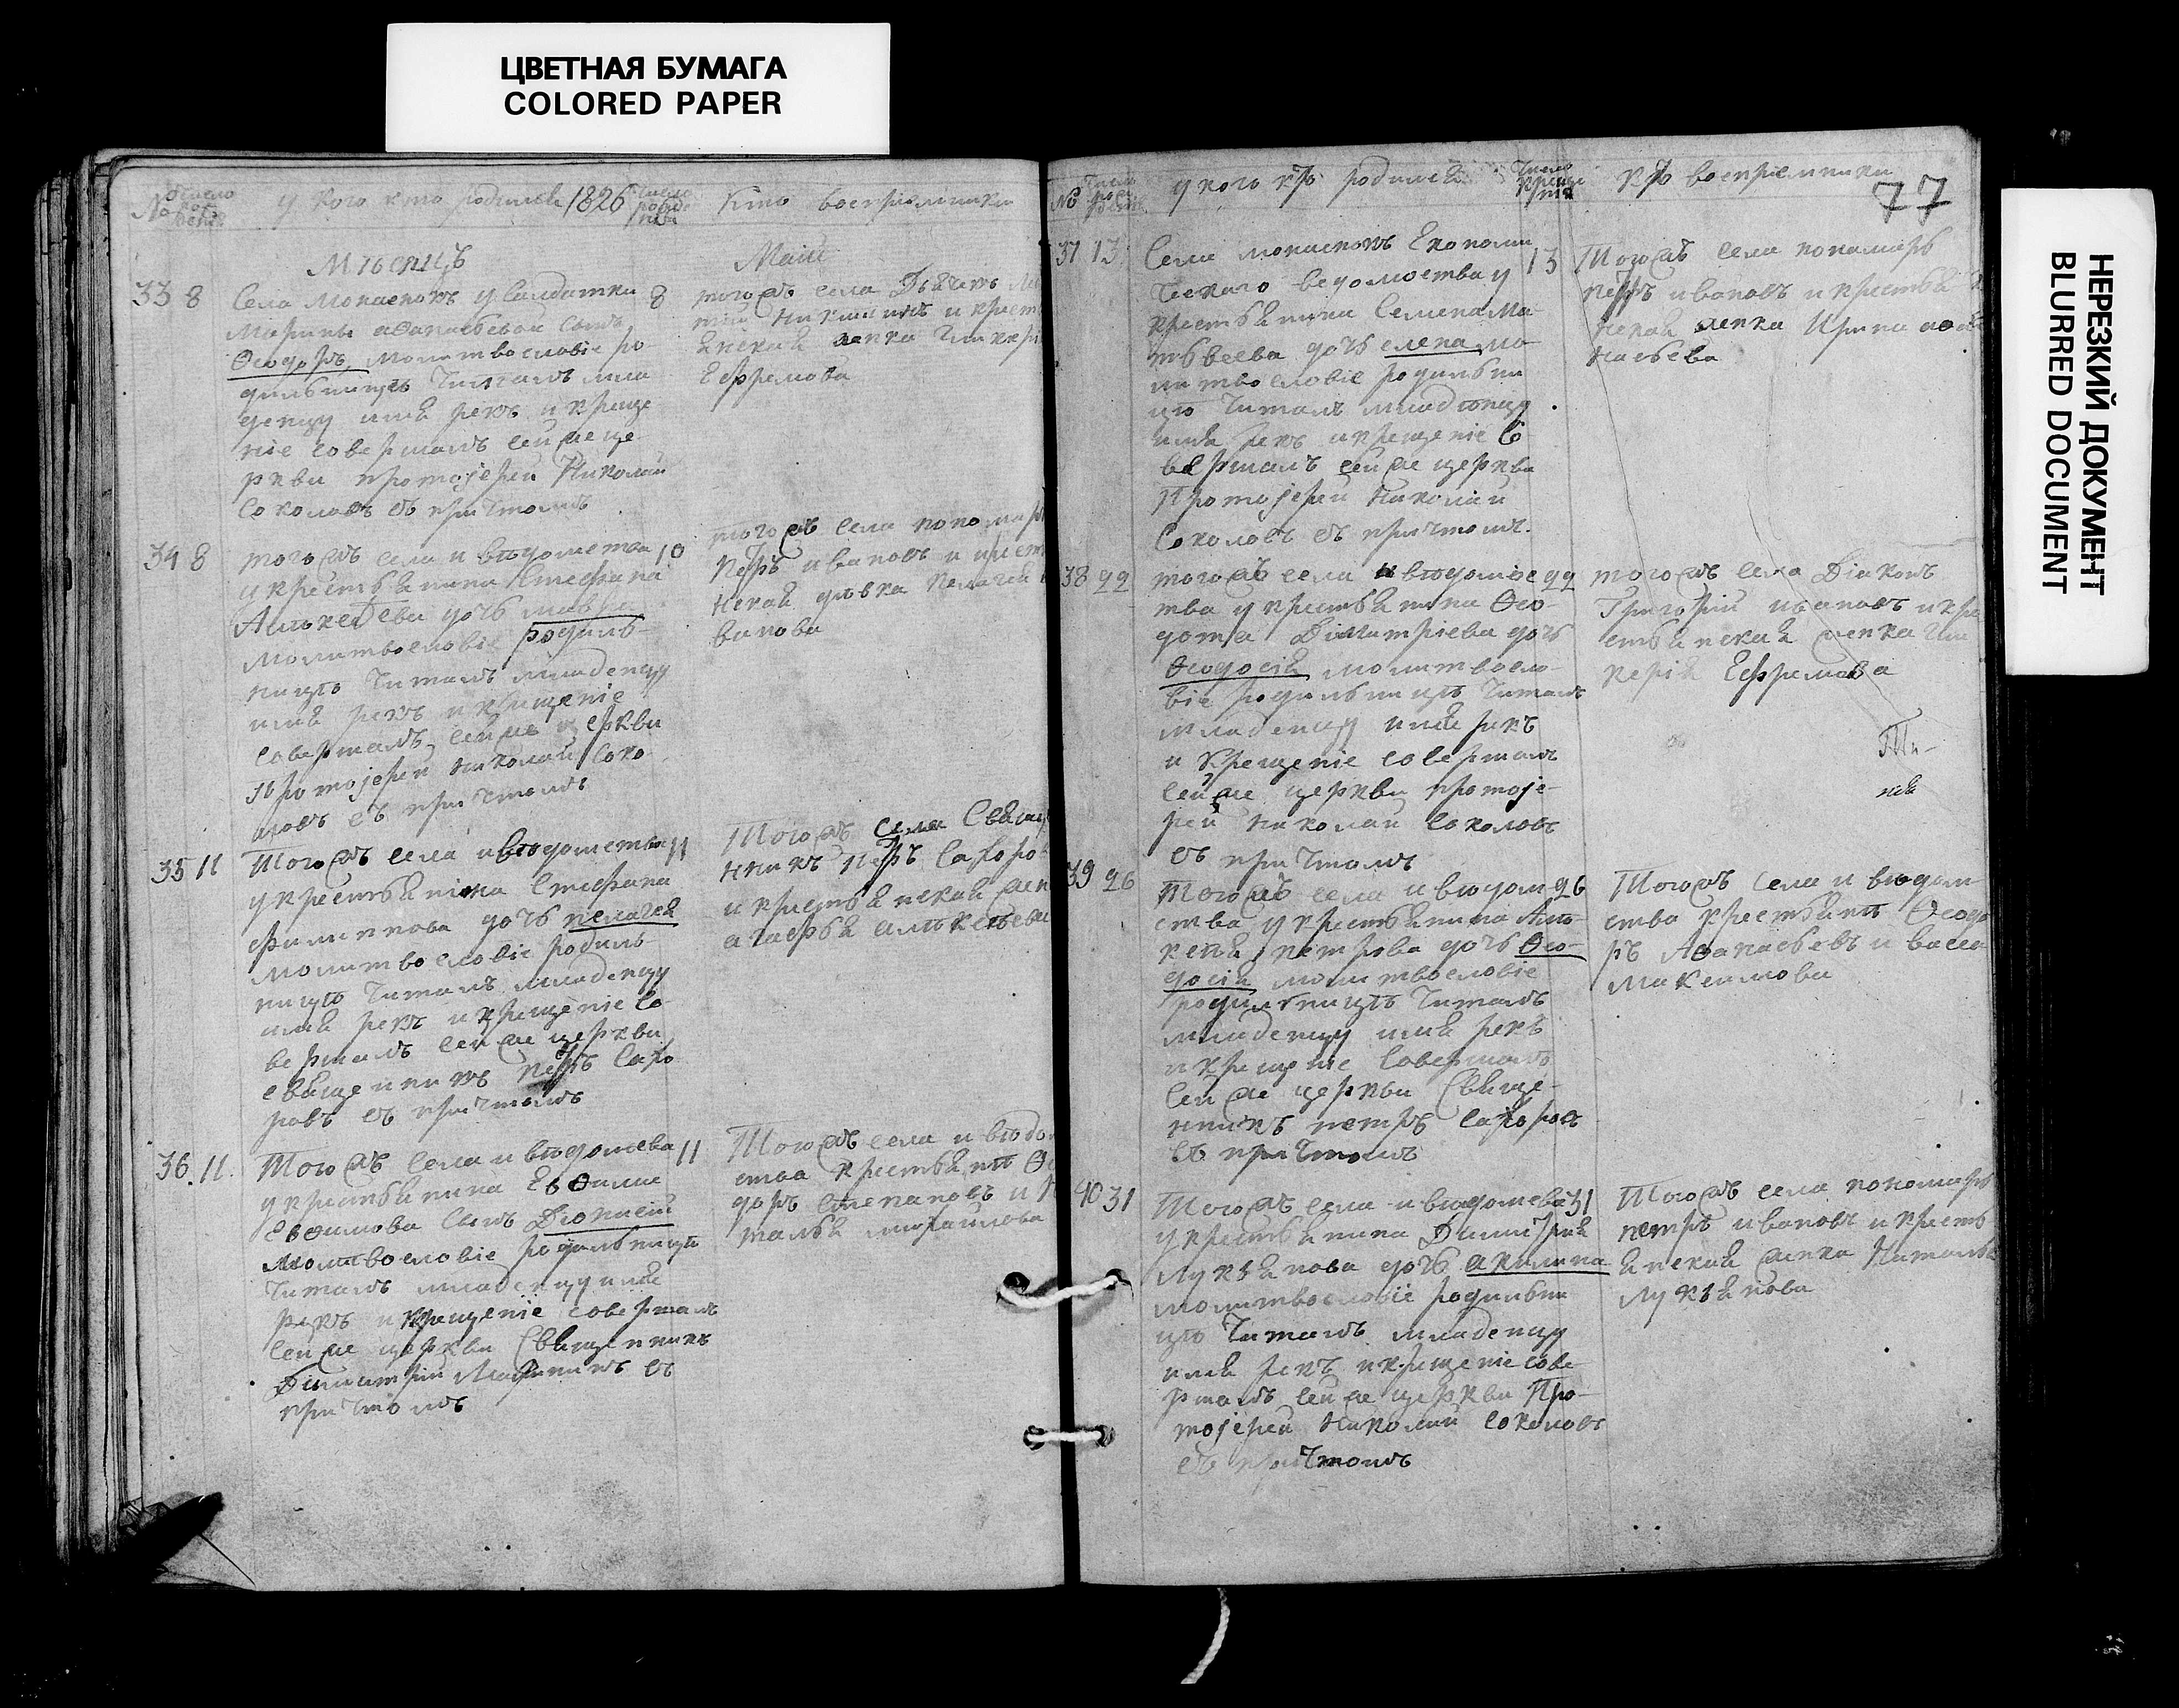 ЦВЕТНАЯ БУМАГА
COLORED PAPER
НЕРЕЗКИЙ ДОКУМЕНТ
BLURRED DOCUMENT
№ число
у кого кто родился 1826
Кто воспріемники
Мѣсяцъ
Маій
33 8
Села Монаенокъ у Салдатки 8
Марины аѳанасьевой сынъ
Ѳеодоръ молитвословіе ро-
дильницѣ Читалъ мла
денцу имя рекъ и креще
ніе совершалъ сей же це
ркви протоjерей Николай
Соколовъ съ причтомъ
того жъ села
Ефремова
34 8
того жъ села и вѣдомства 10
у крестьянина Стефана
Алексеева дочь мавра
молитвословіе родиль-
ницѣ Читалъ младенцу
имя рекъ и крещеніе
совершалъ сей же церкви
протоjерей Николай Соко
ловъ съ причтомъ
того жъ села пономарь
Петръ ивановъ и
девка Пелагея
ванова
35 11
Того жъ села и вѣдомства 11
у крестьянина Стефана
филиппова дочь пелагея
молитвословіе родиль-
ницѣ Читалъ младенцу
имя рекъ и крещеніе со-
вершалъ сей же церкви
священникъ Петръ Сахо
ровъ съ причтомъ
Того жъ села Свяще
нникъ Петръ Сахоро
и крестьянская жен
агафья алексеева
36. 11.
Того жъ села и вѣдомсва 11
у крестьянина Евѳима
Евѳимова сынъ Діонисій
молитвословіе родильницѣ
Читалъ младенцу имя
рекъ и крещеніе совершалъ
сей же церкви Священникъ
Димитрій съ
причтомъ
Того жъ села и вѣдом
ства крестьянъ Ѳе
доръ Степановъ и
талья михайлова
№
у кого кто родился
кто воспріемники
77
37 13
Села монаенокъ Економи
ческаго ведомства у 13
крестьянина Семена Ма-
твѣева дочь елена мо
литвословіе родильни
цѣ Читалъ младенцу
имя рекъ и крещеніе со-
вершалъ сей же церкви
Протоjерей Николай
Соколовъ съ причтомъ.
Того жъ села пономарь
Петръ ивановъ и крестья
нская женка Ирина аѳа
насьева
38 22
того жъ села и вѣдомос 22
тва у крестьянина Ѳео-
дота Димитріева дочь
Ѳеодосія молитвосло-
віе родильницѣ Читалъ
младенцу имя рекъ
и крещеніе совершалъ
сей же церкви протоjе-
рей Николай Соколовъ
съ причтомъ
того жъ села Діаконъ
Григорій ивановъ и кре
стьянская женка Гли
керія Ефремова
39 26
Того жъ села и вѣдом 26
ства у крестьянина Але-
ксѣя петрова дочь Ѳео-
досія молитвословіе
родильницѣ Читалъ
младенцу имя рекъ
и крещеніе совершалъ
сей же церкви Свяще-
нникъ петръ Сахоровъ
съ причтомъ
Того жъ села и вѣдом
ства крестьянъ Ѳеодо
ръ Аѳанасьевъ и васса
Максимова
40 31
Того жъ села и вѣдомсва 31
у крестьянина Димитрія
лукьянова дочь акилина
молитвословіе родильни
цѣ Читалъ младенцу
имя рекъ и крещеніе сове-
ршалъ сей же церкви Про-
тоjерей Николай Соколовъ
съ причтомъ
Того жъ села пономарь
петръ ивановъ и кресть
янская женка Наталья
лукьянова